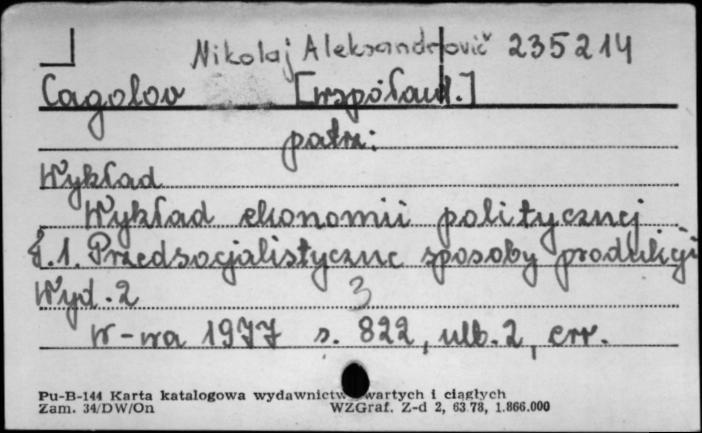 Nikolaj Aleksandrovič 235214
Cagolov [współaut.]
patrz:
Wykład
Wykład ekonomii politycznej
t.1. Przedsocjalistyczne sposoby produkcji
Wyd. 2 3
W-wa 1977 s. 822, ulb. 2, err.
Pu-B-144 Karta katalogowa wydawnictw zwartych i ciągłych
Zam. 34/DW/On WZGraf. Z-d 2, 63.78, 1.866.000